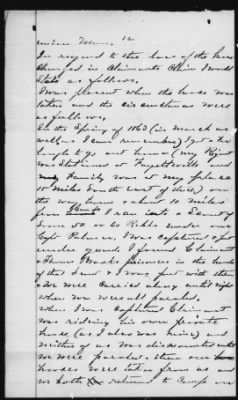 12
In regard to the loss of the horse
charged in Claimants Claim I would
State as follows.
I was present when the horse was
taken and the circumstances were
as follows.
In the Spring of 1863 (in March as
well as I can remember) I got a
to go out home (my Regt
was Stationed at Fayetteville and
my Family was at my place
10 miles South east of this), on
the way home about 10 miles
from Camp I ran into a Scout of
Some 50 or 60 Rebbs under one
Capt Palmer, was Captured & put
under guard, I found Claimant
& Thomas prisoners in the hands
of this Scout & I was put with them
& we were carried along until night
when we were all paroled.
When I was Captured Claimant
was riding his own private
horse (as I also was mine) and
neither of us was dismounted until
we were paroled & then our
horses were taken from us and
we both returned to Camp on